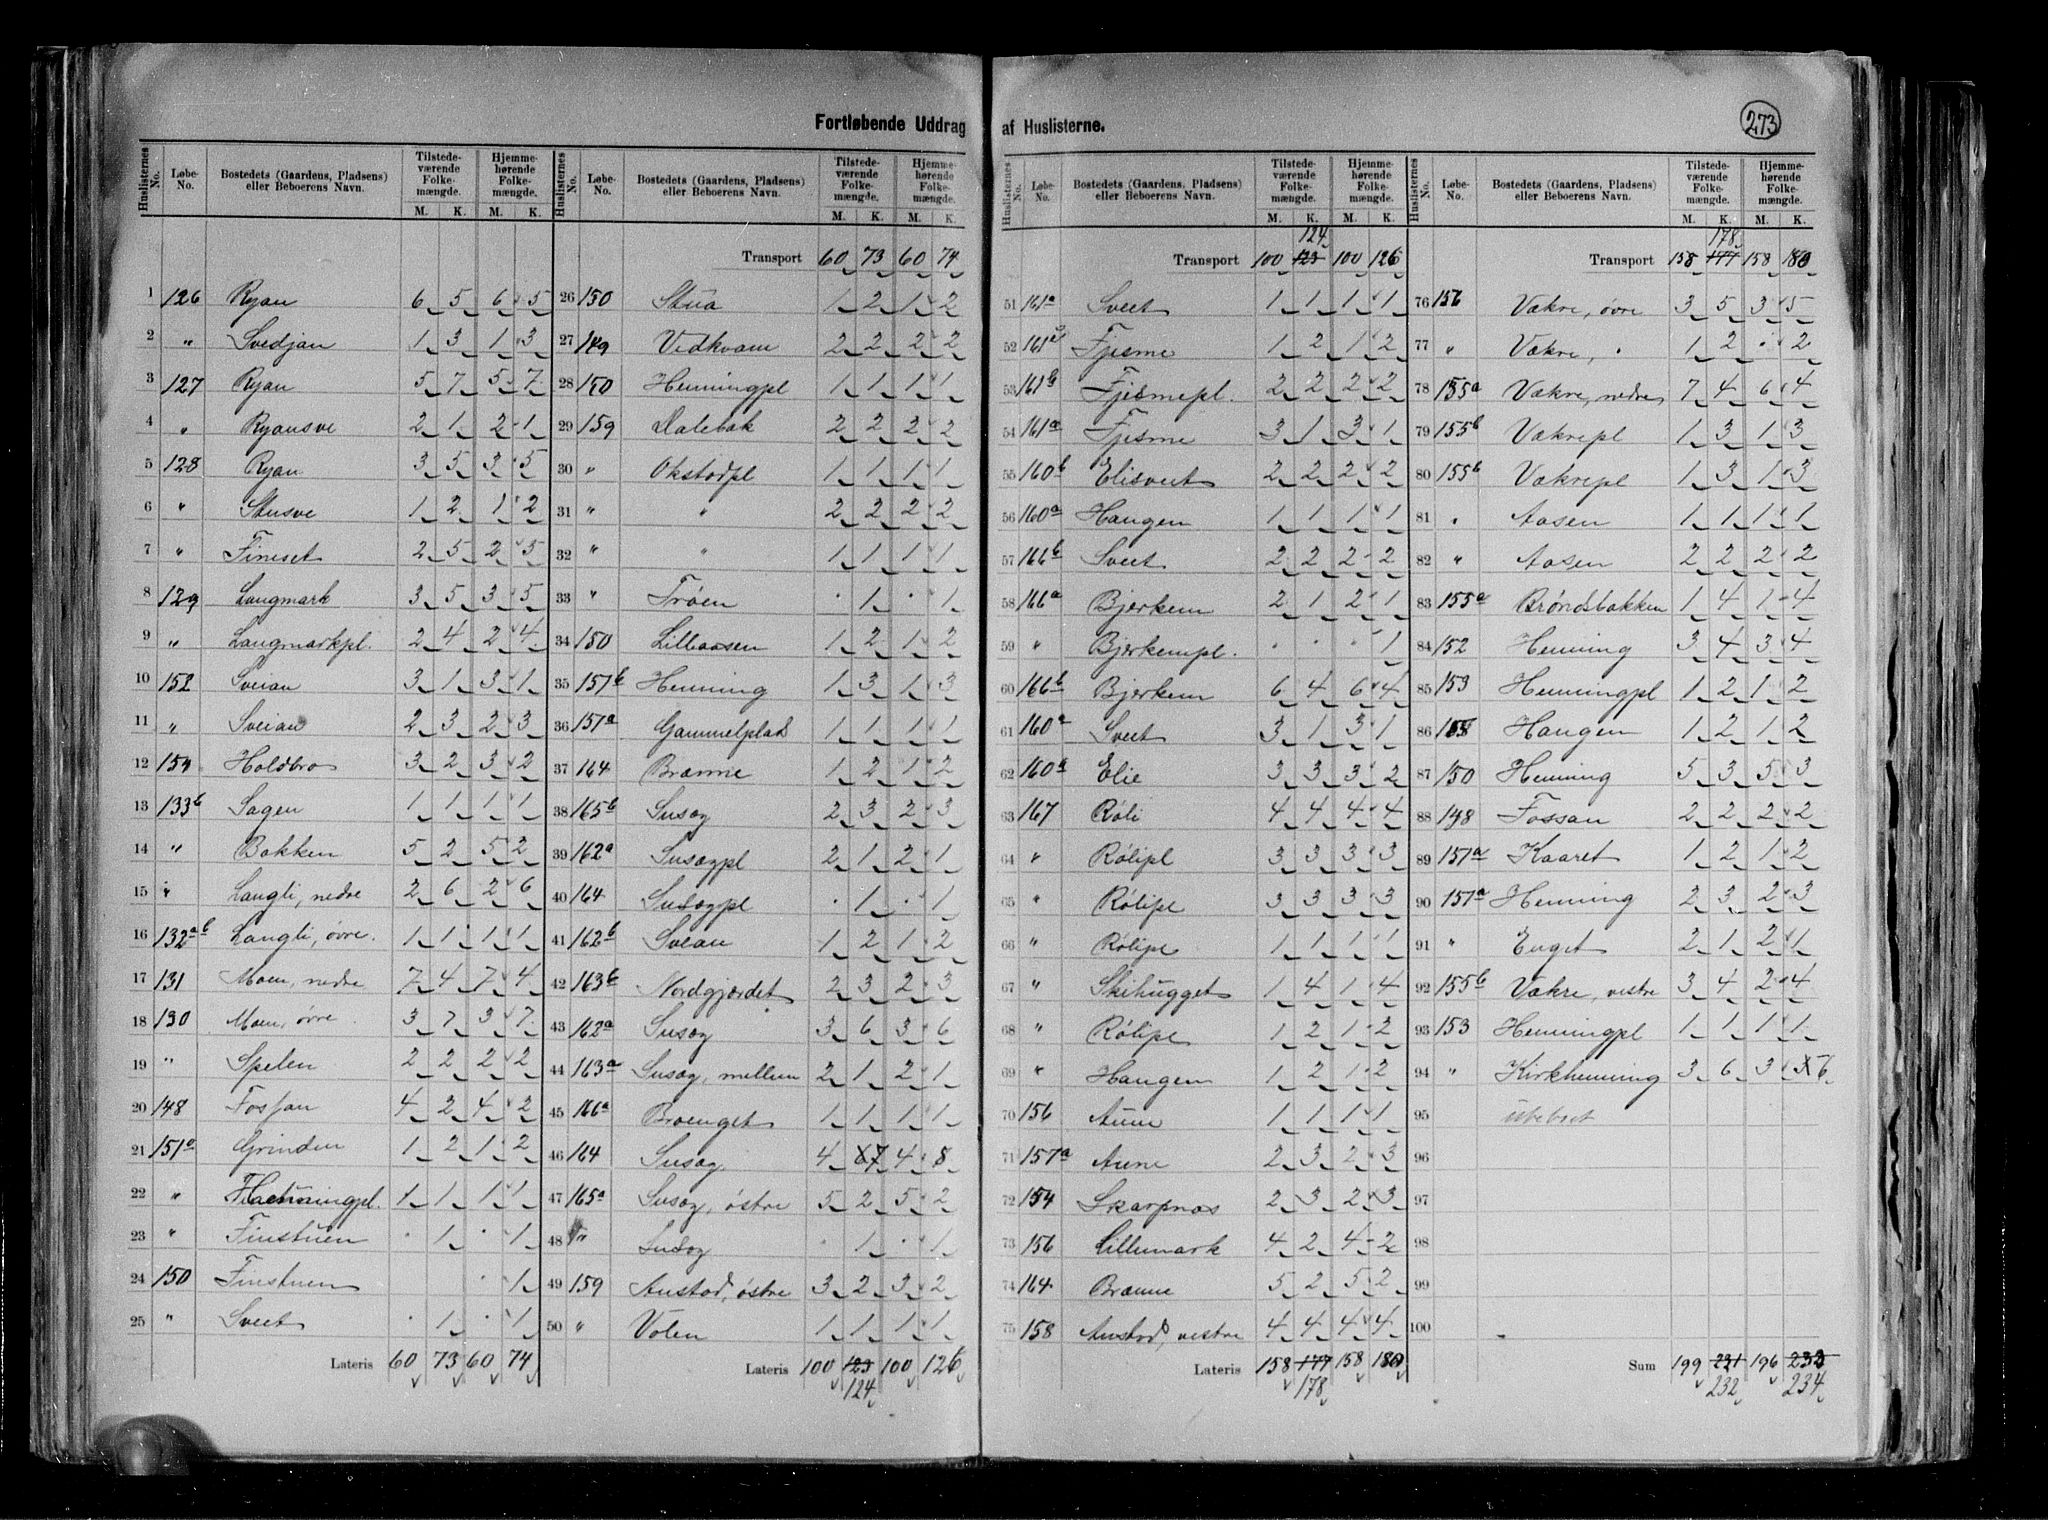 Fortløbende Uddrag af Huslisterne. 273
Huslisternes No. Løbe-No. Bostedets (Gaardens, Pladsens) eller Beboerens Navn. Tilstedeværende Folkemængde. M. K. Hjemmehørende Folkemængde. M. K.
1 126 Ryan 6 5 6 5
2 " Svedjan 1 3 1 3
3 127 Ryan 5 7 5 7
4 " Ryansve 2 1 2 1
5 128 Ryan 3 5 3 5
6 " Stusve 1 2 1 2
7 " Finset 2 5 2 5
8 129 Langmark 3 5 3 5
9 " Langmarkpl. 2 4 2 4
10 152 Sveian 3 1 3 1
11 " Sveian 2 3 2 3
12 159 Holdbro 3 2 3 2
13 133b Sagen 1 1 1 1
14 " Bakken 5 2 5 2
15 " Langli, nedre 2 6 2 6
16 132ab Langli, øvre. 1 1 1 1
17 131 Moen, nedre 7 4 7 4
18 130 Moen, øvre. 3 7 3 7
19 " Spelen 2 2 2 2
20 148 Fossan 4 2 4 2
21 151a Grinden 1 2 1 2
22 " 1 1 1 1
23 " Finstuen . 1 . 1
24 150 Finstuen . 1
25 " Sveet . 1 . 1
Lateris 60 73 60 74
Huslisternes No. Løbe-No. Bostedets (Gaardens, Pladsens) eller Beboerens Navn. Tilstedeværende Folkemængde. M. K. Hjemmehørende Folkemængde. M. K.
Transport 60 73 60 74
26 150 Stua 1 2 1 2
27 149 Vedkvam 2 2 2 2
28 150 Henningpl 1 1 1 1
29 159 Dalebak 2 2 2 2
30 " Okstodpl 1 1 1 1
31 " " 2 2 2 2
32 " " 1 1 1 1
33 " Trøen . 1 . 1
34 150 Lillaasen 1 2 1 2
35 151b Henning 1 3 1 3
36 151a Gammelplads 1 1 1 1
37 164 Brænne 1 2 1 2
38 165b Susæg 2 3 2 3
39 162a Susægpl 2 1 2 1
40 164 Susægpl . 1 . 1
41 162b Sveian 1 2 1 2
42 163b Nordgjærdet 2 3 2 3
43 162a Susæg 3 6 3 6
44 163a Susæg, mellem 2 1 2 1
45 166a Broenget 1 1 1 1
46 164 Susæg 4 7 4 8
47 165a Susæg, østre 5 2 5 2
48 " Susæg . 1 . 1
49 159 Austad, østre 3 2 3 2
50 " Volen 1 1 1 1
Lateris 100 123 100 126
124
Huslisternes No. Løbe-No. Bostedets (Gaardens, Pladsens) eller Beboerens Navn. Tilstedeværende Folkemængde. M. K. Hjemmehørende Folkemængde. M. K.
124
Transport 100 123 100 126
51 161a Sveet 1 1 1 1
52 161a Fjesme 1 2 1 2
53 161b Fjesmepl. 2 2 2 2
54 161a Fjesme 3 1 3 1
55 160b Elisveet 2 2 2 2
56 160a Haugen 1 1 1 1
57 166b Sveet 2 2 2 2
58 166a Bjerkem 2 1 2 1
59 " Bjerkempl. . . . 1
60 166b Bjerkem 6 4 6 4
61 160a Sveet 3 1 3 1
62 160a Elie 3 3 3 2
63 167 Røli 4 4 4 4
64 " Rølipl 3 3 3 3
65 " Rølipl 3 3 3 3
66 " Rølipl 1 1 1 1
67 " Skihugget 1 4 1 4
68 " Rølipl 1 2 1 2
69 " Haugen 1 2 1 2
70 156 Aune 1 1 1 1
71 157a Aune 2 3 2 3
72 154 Skarpnæs 2 3 2 3
73 156 Lillemark 4 2 4 2
74 164 Brænne 5 2 5 2
75 158 Austad, vestre 4 4 4 4
Lateris 158 177 158 180
178
Huslisternes No. Løbe-No. Bostedets (Gaardens, Pladsens) eller Beboerens Navn. Tilstedeværende Folkemængde. M. K. Hjemmehørende Folkemængde. M. K.
178
Transport 158 177 158 180
76 156 Vækre, øvre 3 5 3 5
77 " Vækre, " 1 2 . 2
78 155a Vækre, nedre 7 4 6 4
79 155b Vækrepl 1 3 1 3
80 155b Vækrepl 1 3 1 3
81 " Aasen 1 1 1 1
82 " Aasen 2 2 2 2
83 155a Brøndsbakken 1 4 1 4
84 152 Henning 3 4 3 4
85 153 Henningpl 1 2 1 2
86 Haugen 1 2 1 2
87 150 Henning 5 3 5 3
88 148 Fossan 2 2 2 2
89 151a Kaaret 1 2 1 2
90 151a Henning 2 3 2 3
91 " Enget 2 1 2 1
92 155b Vækre, vestre 3 4 2 4
93 153 Henningpl 1 1 1 1
94 " Kirkhenning 3 6 3 6
95 ubeboet
96
97
98
99
100
Sum 199 231 196 233
232 234